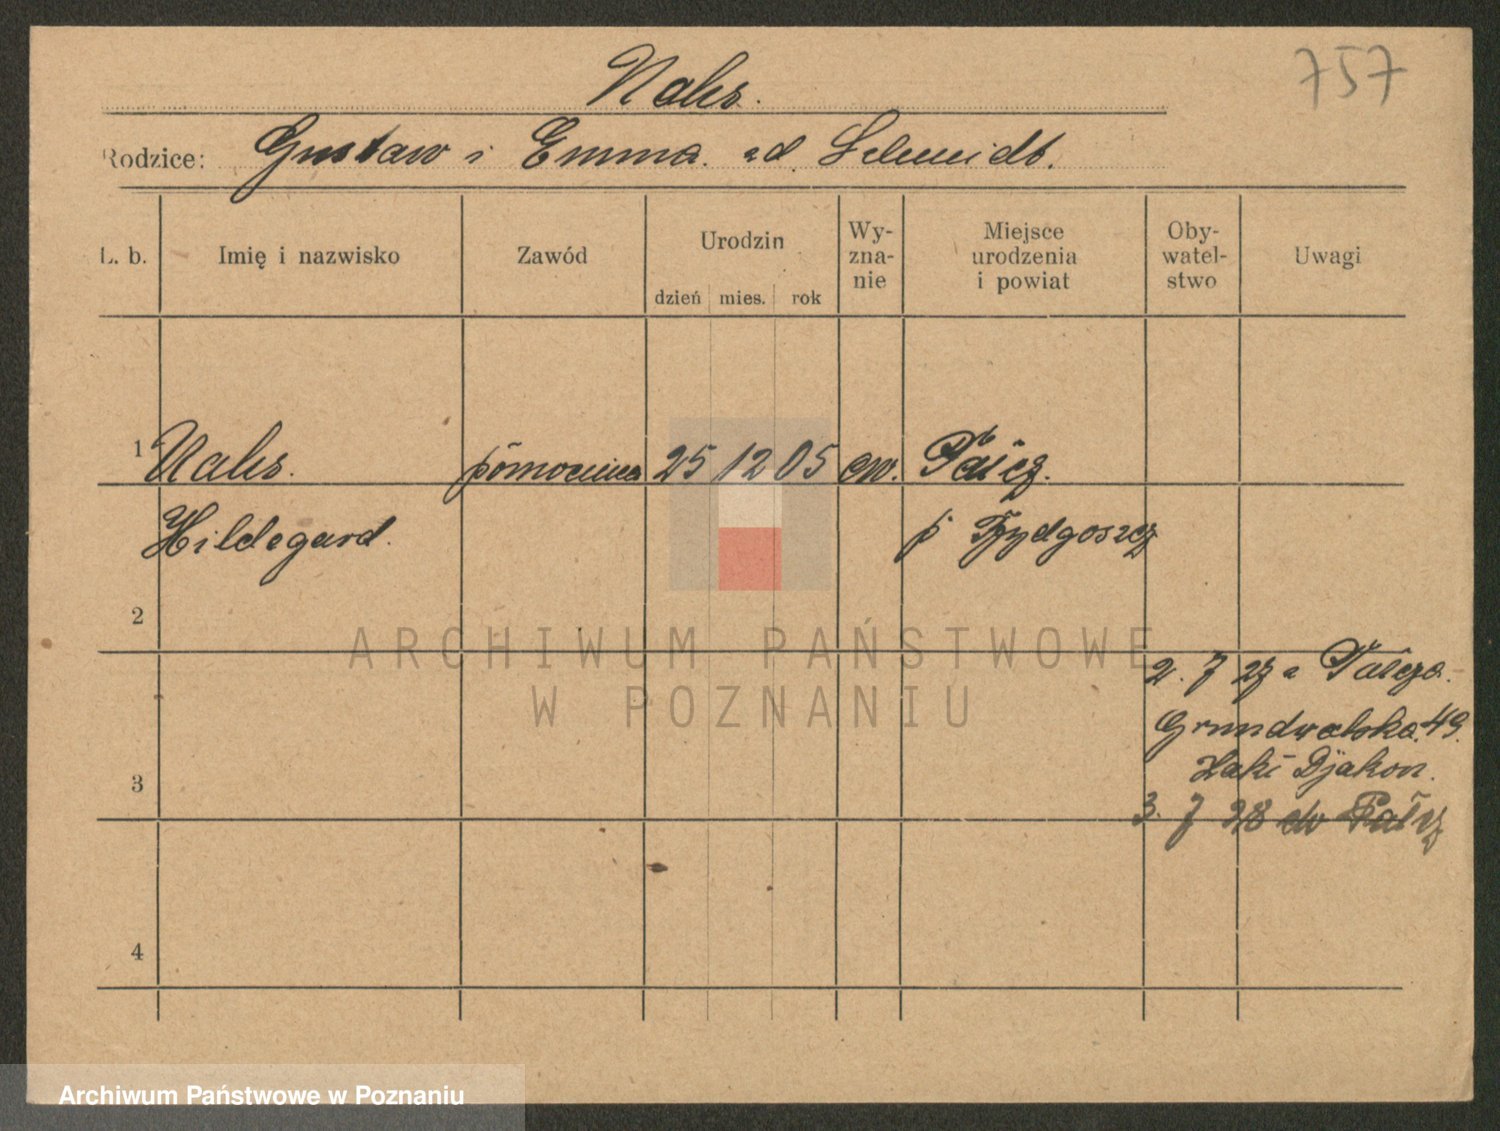 757
Nahs.
Rodzice: Gustaw i Emma. zd Schmidt.
L. b. Imię i nazwisko Zawód Urodzin dzień mies. rok Wy-zna-nie Miejsce urodzenia i powiat Oby-watel-stwo Uwagi
1 Nahs. pomocnica 25 12 05 ew.
Hildegard. p Bydgoszcz
2
ARCHIWUM PAŃSTWOWE
W POZNANIU
2. 7 27 z
Grundwalska. 49.
Zakł Djakon.
3
3. 7 28 do
4
Archiwum Państwowe w Poznaniu